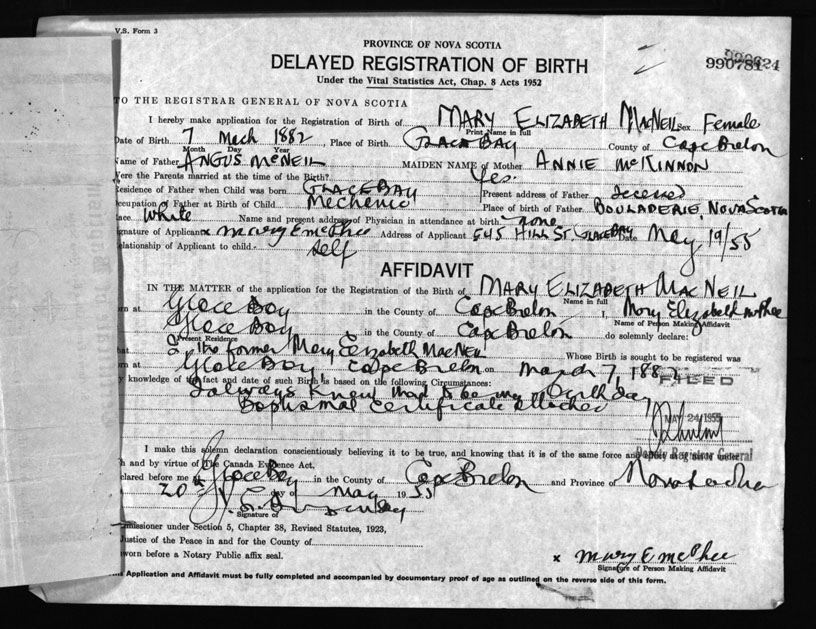 V.S. Form 3
PROVINCE OF NOVA SCOTIA
DELAYED REGISTRATION OF BIRTH
Under the Vital Statistics Act, Chap. 8 Acts 1952
TO THE REGISTRAR GENERAL OF NOVA SCOTIA
I hereby make application for the Registration of Birth of MARY ELIZABETH MacNEIL Sex Female
Print Name in full
Date of Birth 7 Mach 1882, Place of Birth GLACE BAY County of Cape Breton
Month Day Year
Name of Father ANGUS McNEIL MAIDEN NAME of Mother ANNIE McKINNON
Were the Parents married at the time of the Birth? Yes.
Residence of Father when Child was born GLACE BAY Present address of Father
Occupation of Father at Birth of Child Mechanic Place of birth of Father BOULADERIE, NOVA SCOTIA
Race White Name and present address of Physician in attendance at birth none
Signature of Applicant x Mary E McPhee Address of Applicant 545 HILL ST. GLACE BAY Date May 19/55
Relationship of Applicant to child.- self
AFFIDAVIT
IN THE MATTER of the application for the Registration of the Birth of MARY ELIZABETH MAC NEIL
Name in full
rn at Glace Bay in the County of Cape Breton I, Mary Elizabeth McPhee
Name of Person Making Affidavit
Glace Bay in the County of Cape Breton do solemnly declare:
Present Residence
hat I, the former Mary Elizabeth MacNeil Whose Birth is sought to be registered was
rn at Glace Bay Cape Breton on March 7, 188
y knowledge of the fact and date of such Birth is based on the following Circumstances:
FILED
I always knew that to be my birthday
Baptismal certificate attached
MAY 24 1955
Deputy Registrar General
I make this solemn declaration conscientiously believing it to be true, and knowing that it is of the same force and
h and by virtue of The Canada Evidence Act.
clared before me at Glace Bay in the County of Cape Breton and Province of Nova Scotia
20 day of May 1955
Signature of
mmissioner under Section 5, Chapter 38, Revised Statutes, 1923,
Justice of the Peace in and for the County of
worn before a Notary Public affix seal.
x Mary E McPhee
Signature of Person Making Affidavit
Application and Affidavit must be fully completed and accompanied by documentary proof of age as outlined on the reverse side of this form.